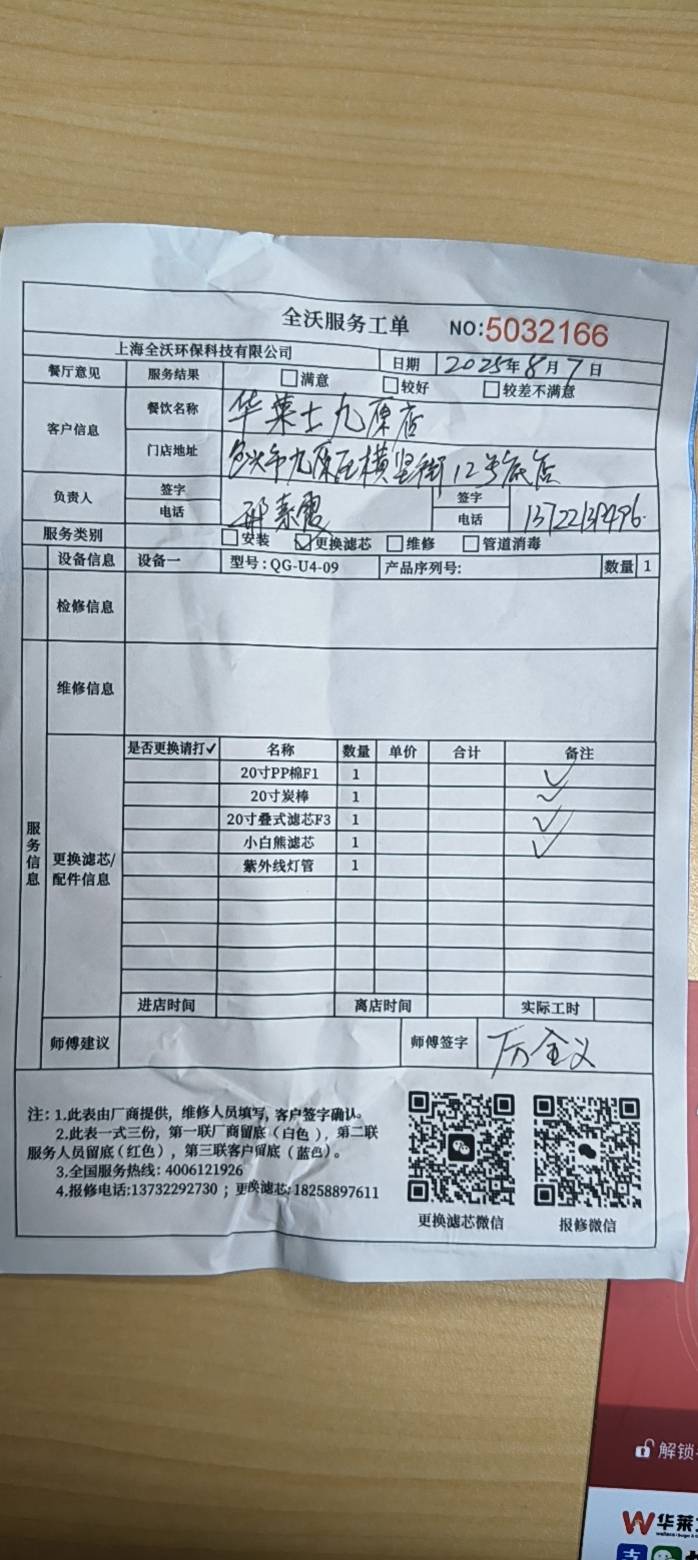 全沃服务工单 NO:5032166
上海全沃环保科技有限公司 日期 2025年8月7日
餐厅意见 服务结果 □满意 □较好 □较差不满意
客户信息 餐饮名称 华莱士九原店
门店地址 包头市九原区横竖街12号底店
负责人 签字 签字
电话 电话
服务类别 □安装 ☑更换滤芯 □维修 □管道消毒
设备信息 设备一 型号:QG-U4-09 产品序列号: 数量 1
检修信息
维修信息
服务信息
更换滤芯/配件信息
是否更换请打✓ 名称 数量 单价 合计 备注
20寸PP棉F1 1 ✓
20寸炭棒 1 ✓
20寸叠式滤芯F3 1 ✓
小白熊滤芯 1 ✓
紫外线灯管 1
进店时间 离店时间 实际工时
师傅建议 师傅签字
注:1.此表由厂商提供,维修人员填写,客户签字确认。
2.此表一式三份,第一联厂商留底(白色),第二联
服务人员留底(红色),第三联客户留底(蓝色)。
3.全国服务热线:4006121926
4.报修电话:13732292730;更换滤芯:18258897611
更换滤芯微信 报修微信
解锁
华莱
支